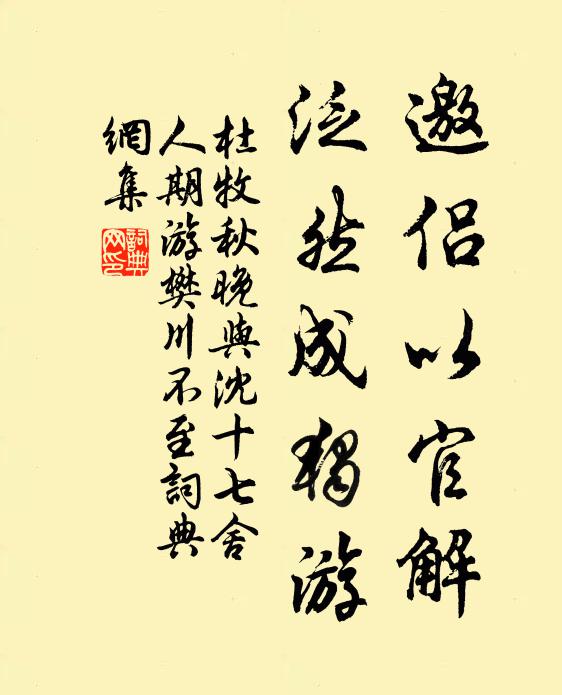 邀侣以官解
泛然成独游
杜牧秋晚與沈十七舍
人期游樊川不至詞典
網集
詞典
网印